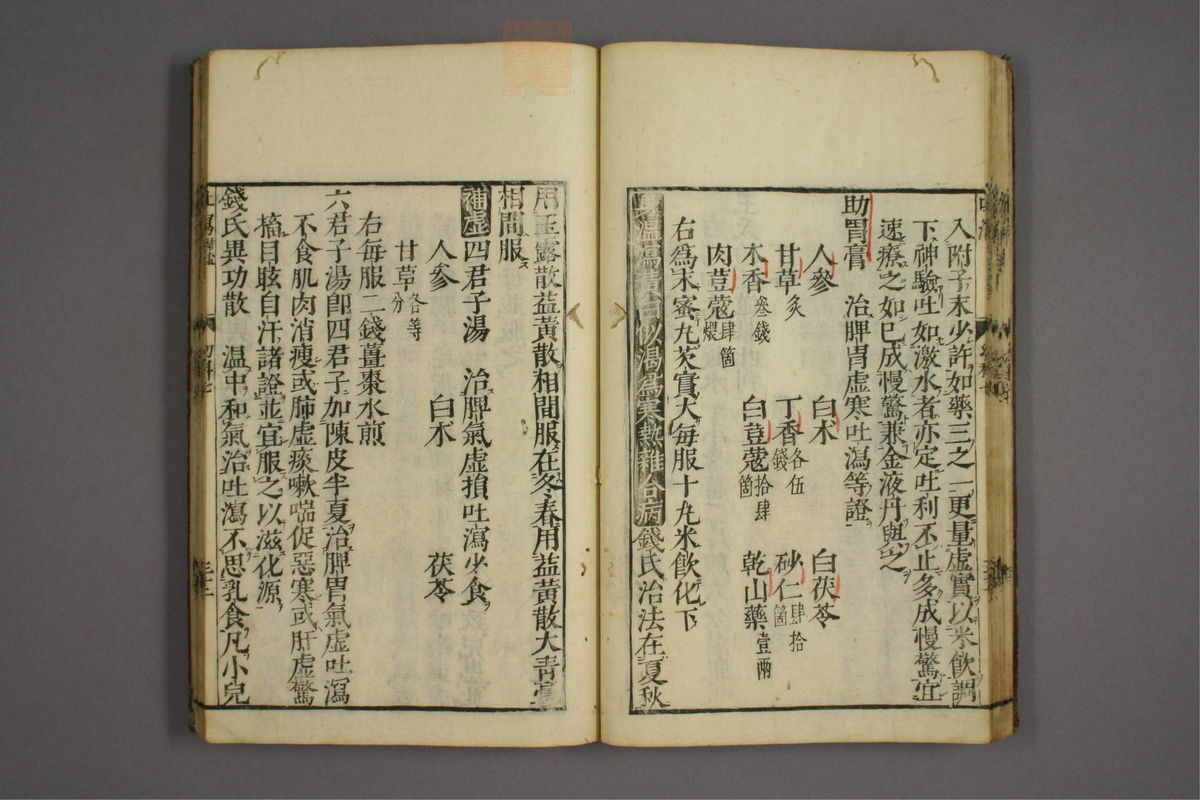 入附子末少許如藥三之一更量虛實以米飲調
下神驗吐如激水者亦定吐利不止多成慢驚宜
速療之如已成慢驚兼金液丹與之
助胃膏 治脾胃虛寒吐瀉等證
人參 白术 白茯苓
甘草炙 丁香各伍錢 砂仁肆拾箇
木香叄錢 白荳蔻拾肆箇 乾山藥壹兩
肉荳蔻肆箇煨
右爲末蜜丸芡實大每服十丸米飲化下
身溫瀉青白似渴爲寒熱雜合病錢氏治法在夏秋
用玉露散益黃散相間服在冬春用益黃散大青膏
相間服
補虛四君子湯 治脾氣虛損吐瀉少食
人參 白术 茯苓
甘草各等分
右每服二錢薑棗水煎
六君子湯卽四君子加陳皮半夏治脾胃氣虛吐瀉
不食肌肉消瘦或肺虛痰嗽喘促惡寒或肝虛驚
搐目眩自汗諸證並宜服之以滋化源
錢氏異功散 溫中和氣治吐瀉不思乳食凡小兒